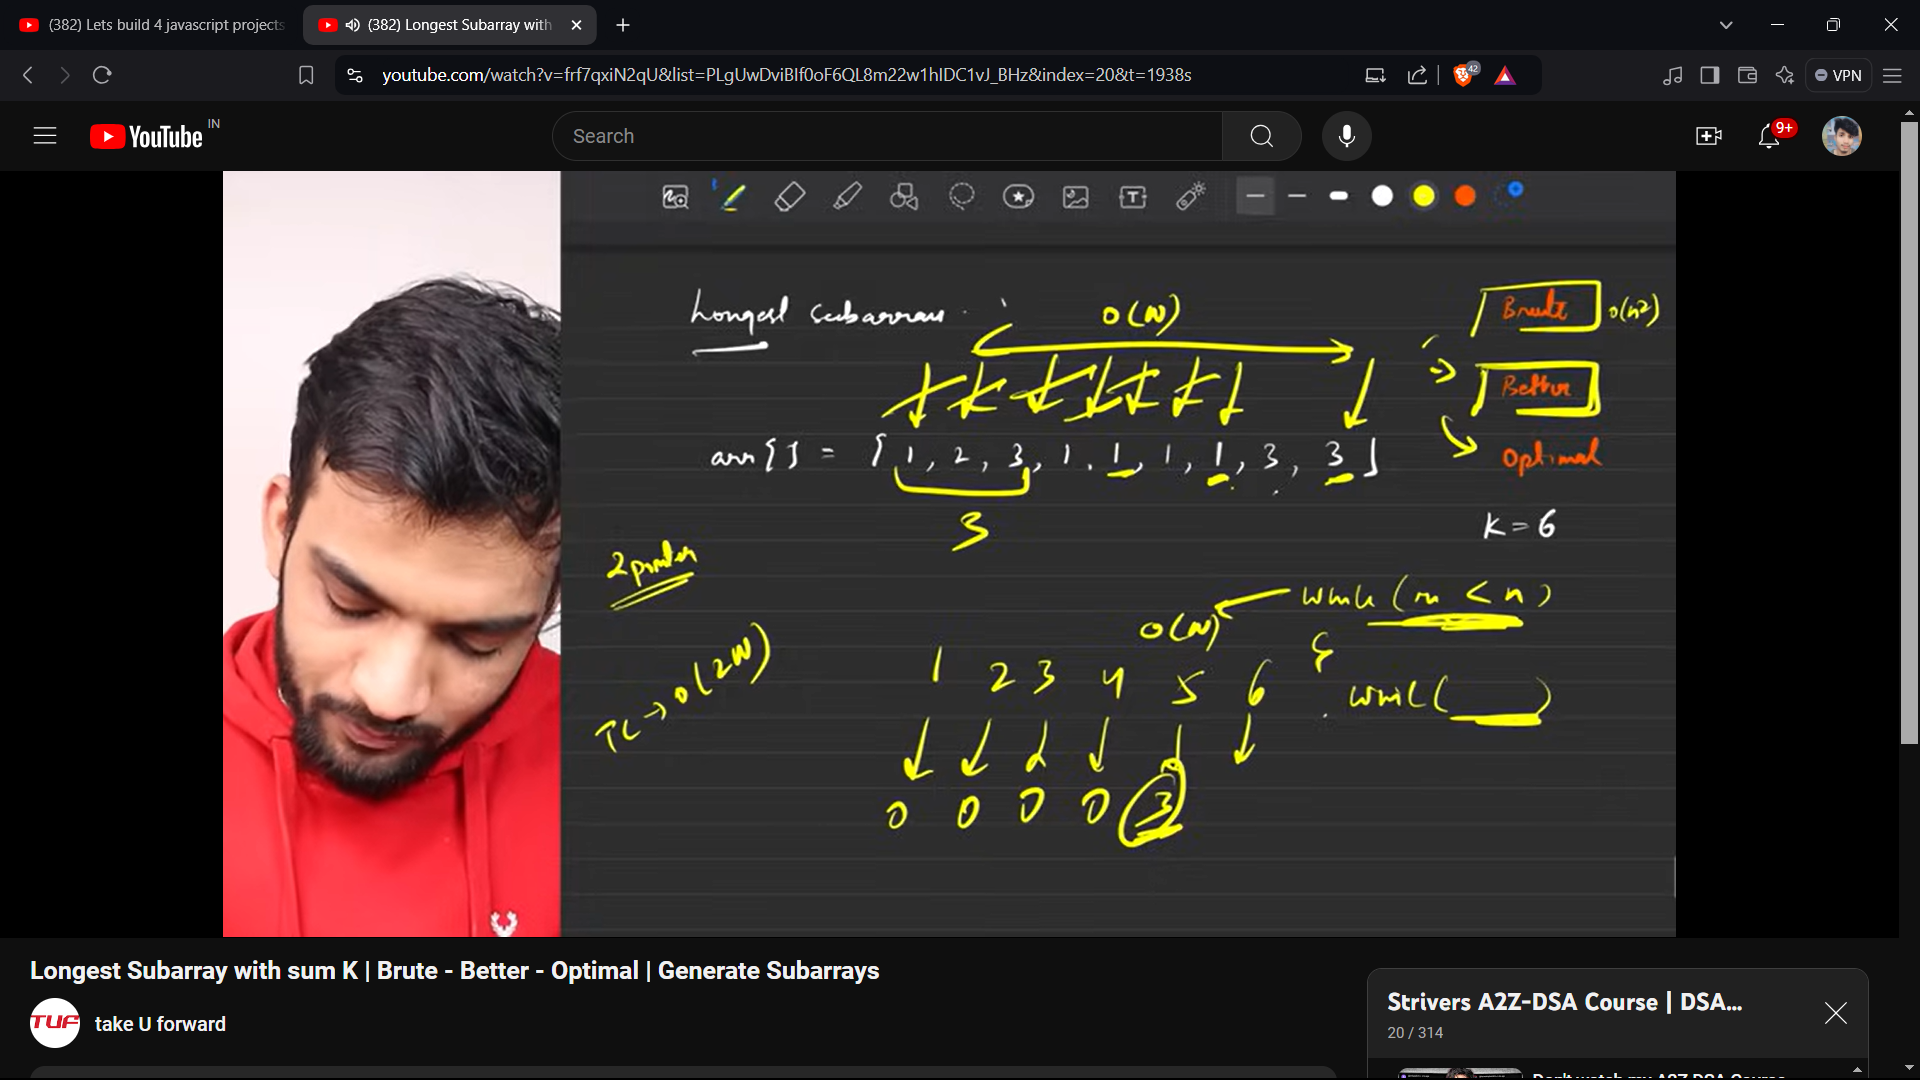 (382) Lets build 4 javascript projects
(382) Longest Subarray with
youtube.com/watch?v=frf7qxiN2qU&list=PLgUwDviBIf0oF6QL8m22w1hIDC1vJ_BHz&index=20&t=1938s
42
VPN
YouTube IN
Search
9+
T
Longest subarray
O(N)
Brute O(n2)
Better
arr[] = [1, 2, 3, 1, 1, 1, 1, 3, 3]
Optimal
3
K = 6
2 pointer
while ( < n)
O(N)
{
TC → O(2N)
1 2 3 4 5 6
while( )
0 0 0 0 3
Longest Subarray with sum K | Brute - Better - Optimal | Generate Subarrays
TUF
take U forward
Strivers A2Z-DSA Course | DSA...
20 / 314
Don't watch my A2Z DSA Course